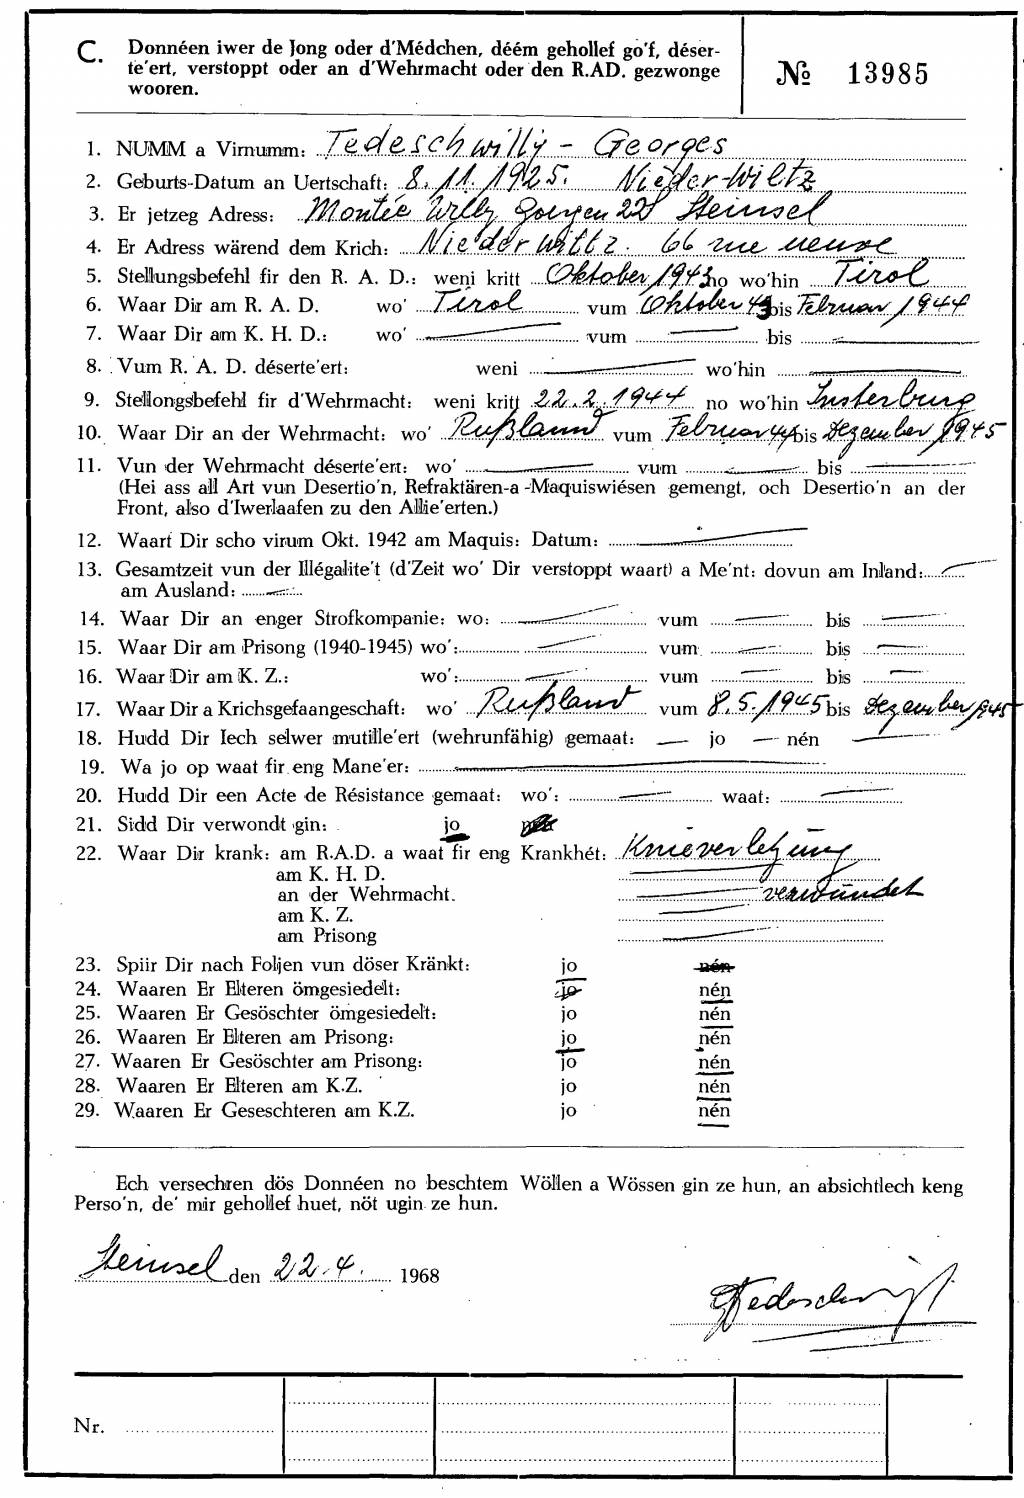 C. Donnéen iwer de Jong oder d'Médchen, déém gehollef go'f, déser-
te'ert, verstoppt oder an d'Wehrmacht oder den R.AD. gezwonge
wooren.
№ 13985
1. NUMM a Virnumm: Tedesch Willy - Georges
2. Geburts-Datum an Uertschaft: 8.11.1925. Nieder-Wiltz
3. Er jetzeg Adress: Montée Willy Goergen 22 Steinsel
4. Er Adress wärend dem Krich: Niederwiltz. 66 rue neuve
5. Stellungsbefehl fir den R. A. D.: weni kritt Oktober 1943 no wo'hin Tirol
6. Waar Dir am R. A. D. wo' Tirol vum Oktober 43 bis Februar 1944
7. Waar Dir am K. H. D.: wo' vum bis
8. Vum R. A. D. déserte'ert: weni wo'hin
9. Stellongsbefehl fir d'Wehrmacht: weni kritt 22.2.1944 no wo'hin Insterburg
10. Waar Dir an der Wehrmacht: wo' Rußland vum Februar 44 bis Dezember 1945
11. Vun der Wehrmacht déserte'ert: wo' vum bis
(Hei ass all Art vun Desertio'n, Refraktären-a -Maquiswiésen gemengt, och Desertio'n an der
Front, also d'Iwerlaafen zu den Allie'erten.)
12. Waart Dir scho virum Okt. 1942 am Maquis: Datum:
13. Gesamtzeit vun der Illégalite't (d'Zeit wo' Dir verstoppt waart) a Me'nt: dovun am Inland:
am Ausland:
14. Waar Dir an enger Strofkompanie: wo: vum bis
15. Waar Dir am Prisong (1940-1945) wo': vum bis
16. Waar Dir am K. Z.: wo': vum bis
17. Waar Dir a Krichsgefaangeschaft: wo' Rußland vum 8.5.1945 bis Dezember 1945
18. Hudd Dir Iech selwer mutille'ert (wehrunfähig) gemaat: jo nén
19. Wa jo op waat fir eng Mane'er:
20. Hudd Dir een Acte de Résistance gemaat: wo': waat:
21. Sidd Dir verwondt gin: jo nén
22. Waar Dir krank: am R.A.D. a waat fir eng Krankhét: Knieverletzung
am K. H. D.
an der Wehrmacht. verwundet
am K. Z.
am Prisong
23. Spiir Dir nach Foljen vun döser Kränkt: jo nén
24. Waaren Er Elteren ömgesiedelt: jo nén
25. Waaren Er Gesöschter ömgesiedelt: jo nén
26. Waaren Er Elteren am Prisong: jo nén
27. Waaren Er Gesöschter am Prisong: jo nén
28. Waaren Er Elteren am K.Z. jo nén
29. Waaren Er Geseschteren am K.Z. jo nén
Ech versechren dös Donnéen no beschtem Wöllen a Wössen gin ze hun, an absichtlech keng
Perso'n, de' mir gehollef huet, nöt ugin ze hun.
Steinsel den 22.4. 1968
Nr.